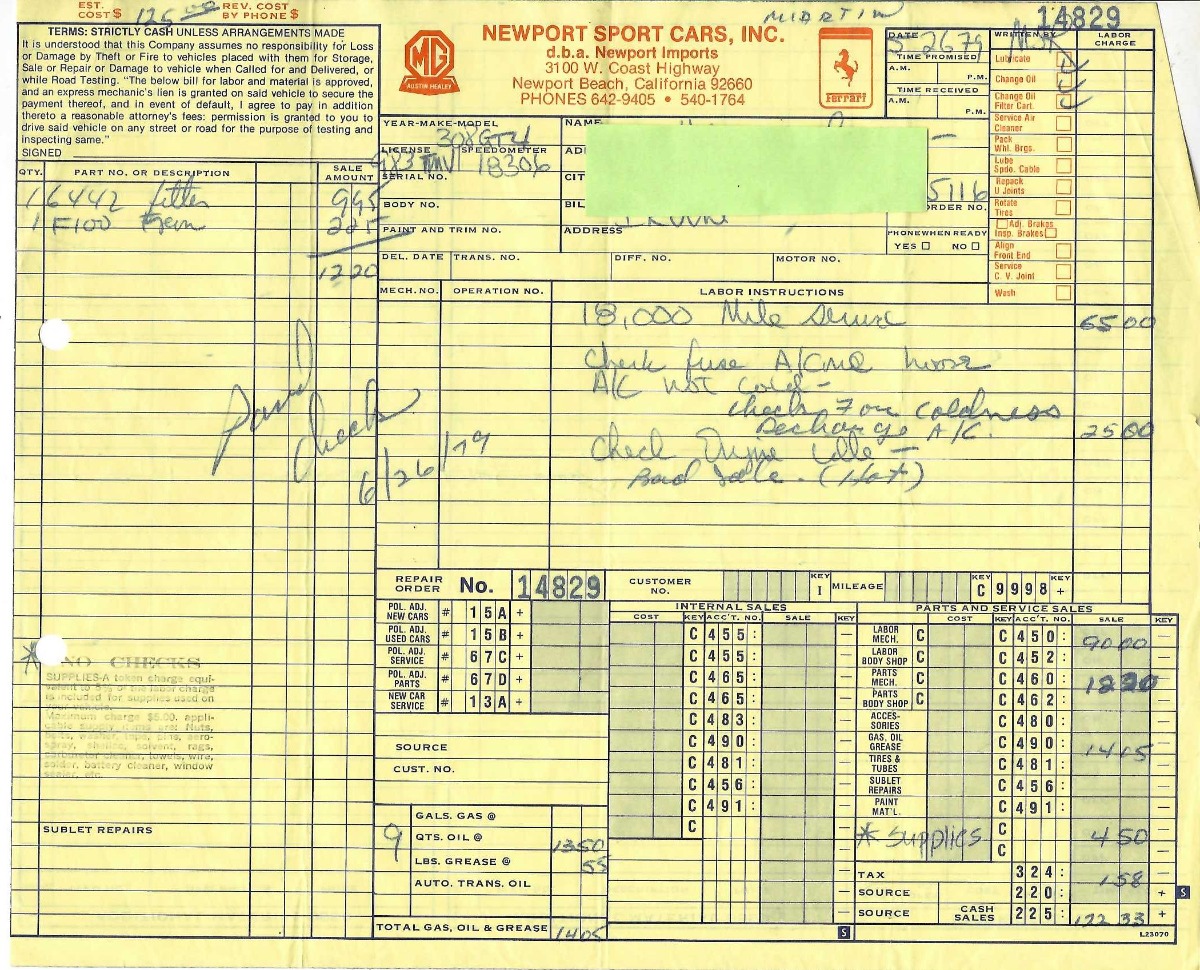 EST. COST $ 125.00 REV. COST BY PHONE $
MARTIN
14829
TERMS: STRICTLY CASH UNLESS ARRANGEMENTS MADE
It is understood that this Company assumes no responsibility for Loss
or Damage by Theft or Fire to vehicles placed with them for Storage,
Sale or Repair or Damage to vehicle when Called for and Delivered, or
while Road Testing. "The below bill for labor and material is approved,
and an express mechanic's lien is granted on said vehicle to secure the
payment thereof, and in event of default, I agree to pay in addition
thereto a reasonable attorney's fees: permission is granted to you to
drive said vehicle on any street or road for the purpose of testing and
inspecting same."
SIGNED
MG
AUSTIN HEALEY
NEWPORT SPORT CARS, INC.
d.b.a. Newport Imports
3100 W. Coast Highway
Newport Beach, California 92660
PHONES 642-9405 • 540-1764
Ferrari
DATE 5-26 79
WRITTEN BY
LABOR CHARGE
TIME PROMISED
A.M.
P.M.
TIME RECEIVED
A.M.
P.M.
Lubricate
Change Oil
Change Oil Filter Cart.
Service Air Cleaner
Pack Whl. Brgs.
Lube Spdo. Cable
Repack U Joints
Rotate Tires
Adj. Brakes
Insp. Brakes
Align Front End
Service C. V. Joint
Wash
YEAR-MAKE-MODEL
308GT4
NAME
LICENSE SPEEDOMETER
983 TMV 18306
SERIAL NO.
BODY NO.
PAINT AND TRIM NO.
ADDRESS
5116
ORDER NO.
PHONE WHEN READY
YES NO
DEL. DATE TRANS. NO. DIFF. NO. MOTOR NO.
QTY. PART NO. OR DESCRIPTION SALE AMOUNT
1 6442 filter 995
1 F100 225
1220
MECH. NO. OPERATION NO. LABOR INSTRUCTIONS
18,000 Mile Service 65 00
Check fuse A/C
A/C not cold -
Check For Coldness
Recharge A/C. 25 00
Check Engine Idle -
Bad Idle. (Hot)
Paid
Check
6/26/79
REPAIR ORDER No. 14829
CUSTOMER NO. KEY I MILEAGE KEY C 9998 KEY +
POL. ADJ. NEW CARS # 15A +
POL. ADJ. USED CARS # 15B +
POL. ADJ. SERVICE # 67C +
POL. ADJ. PARTS # 67D +
NEW CAR SERVICE # 13A +
SOURCE
CUST. NO.
INTERNAL SALES
COST KEY ACC'T. NO. SALE KEY
C 455:
C 455:
C 465:
C 465:
C 483:
C 490:
C 481:
C 456:
C 491:
C
PARTS AND SERVICE SALES
COST KEY ACC'T. NO. SALE KEY
LABOR MECH. C C 450: 90 00
LABOR BODY SHOP C C 452:
PARTS MECH. C C 460: 1220
PARTS BODY SHOP C C 462:
ACCESSORIES C 480:
GAS, OIL GREASE C 490: 1405
TIRES & TUBES C 481:
SUBLET REPAIRS C 456:
PAINT MAT'L. C 491:
* Supplies C 4 50
C
TAX 324: 1 58
SOURCE 220: + S
SOURCE CASH SALES 225: 122 33 +
* NO CHECKS
SUPPLIES-A token charge equivalent to 5% of the labor charge
is included for supplies used on
your vehicle.
Maximum charge $5.00.
SUBLET REPAIRS
GALS. GAS @
9 QTS. OIL @ 1350
LBS. GREASE @ 55
AUTO. TRANS. OIL
TOTAL GAS, OIL & GREASE 1405
S
L23070